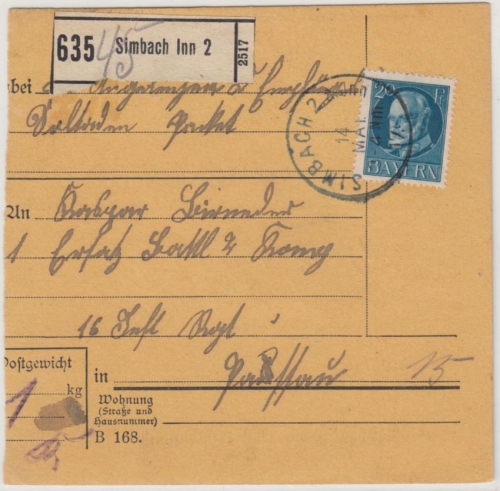 635 45 Simbach Inn 2 2517
bei
Soldaten Packet
SIMBACH 2
14 MAI
20 Pf
BAYERN
An Kaspar Birneder
1 Ersatz Batl 2 Komp
16 Inft Regt
Postgewicht
kg
in Passau 15
Wohnung
(Straße und
Hausnummer)
B 168.